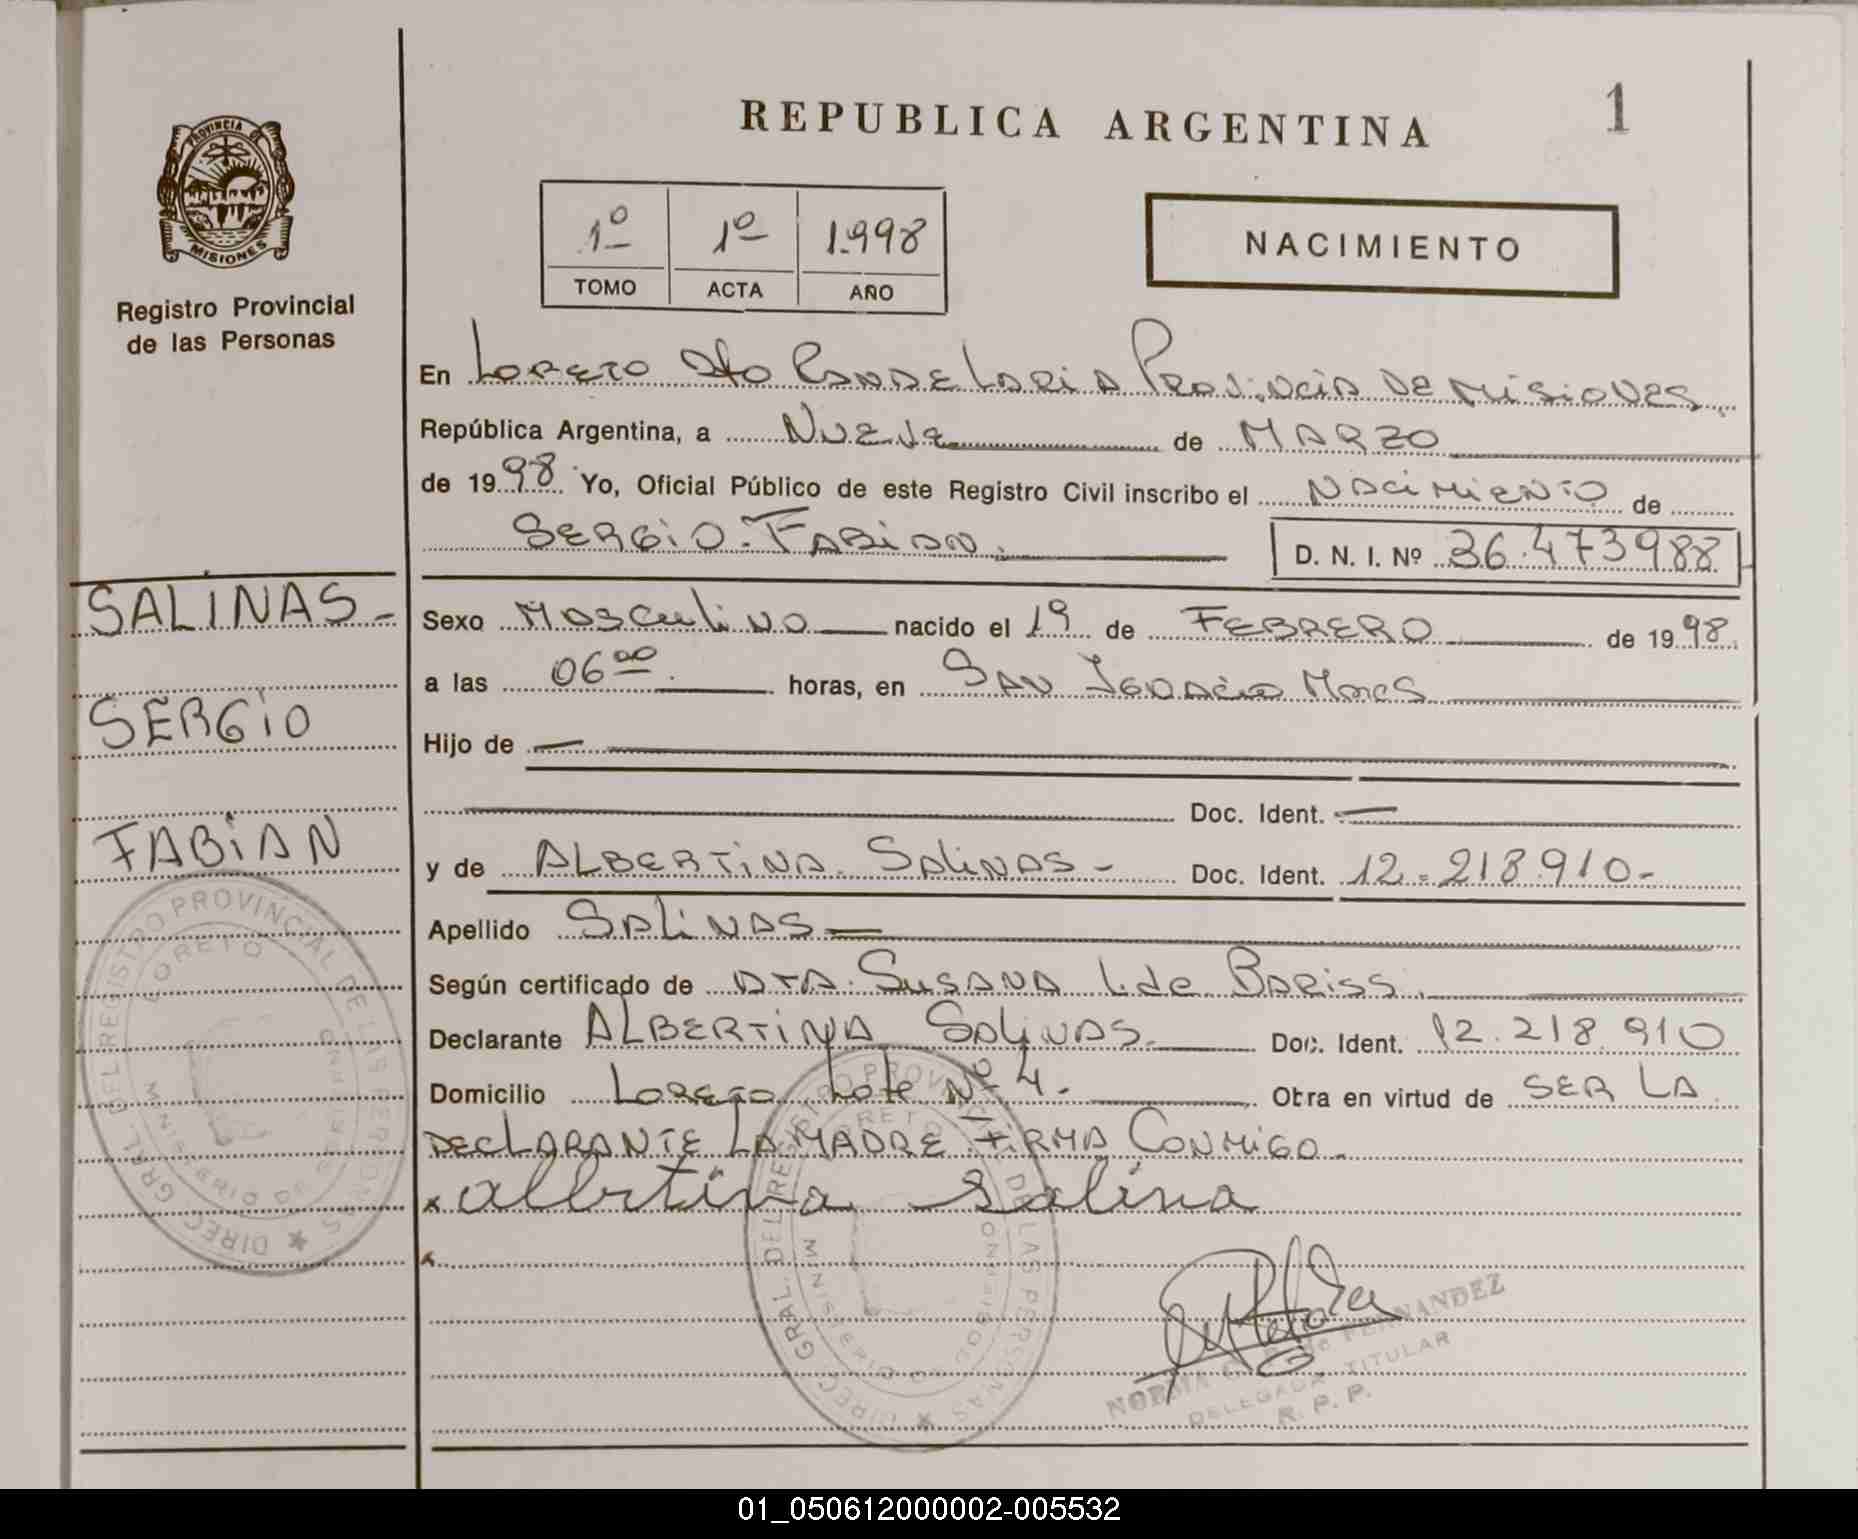 REPUBLICA ARGENTINA
1
PROVINCIA DE
MISIONES
Registro Provincial
de las Personas
1º 1º 1.998
TOMO ACTA AÑO
NACIMIENTO
En LORETO Dto CANDELARIA PROVINCIA DE MISIONES
República Argentina, a NUEVE de MARZO
de 1998 Yo, Oficial Público de este Registro Civil inscribo el NACIMIENTO de
SERGIO FABIAN. D. N. I. Nº 36.473988
SALINAS-
SERGIO
FABIAN
Sexo MASCULINO nacido el 19 de FEBRERO de 1998.
a las 06 00 horas, en SAN IGNACIO Mnes
Hijo de —
Doc. Ident. —
y de ALBERTINA SALINAS- Doc. Ident. 12.218.910-
Apellido SALINAS
Según certificado de DRA. SUSANA L. de BARISS.
Declarante ALBERTINA SALINAS. Doc. Ident. 12.218.910
Domicilio LORETO Lote Nº 4.- Otra en virtud de SER LA
DECLARANTE LA MADRE FIRMA CONMIGO.
x albertina Salina
x
DIREC. GRAL. DEL REGISTRO PROVINCIAL DE LAS PERSONAS
LORETO
MINISTERIO DE GOBIERNO
DIREC. GRAL. DEL REGISTRO PROVINCIAL DE LAS PERSONAS
LORETO
MINISTERIO DE GOBIERNO
NORMA G. de FERNANDEZ
DELEGADA TITULAR
R. P. P.
01_050612000002-005532